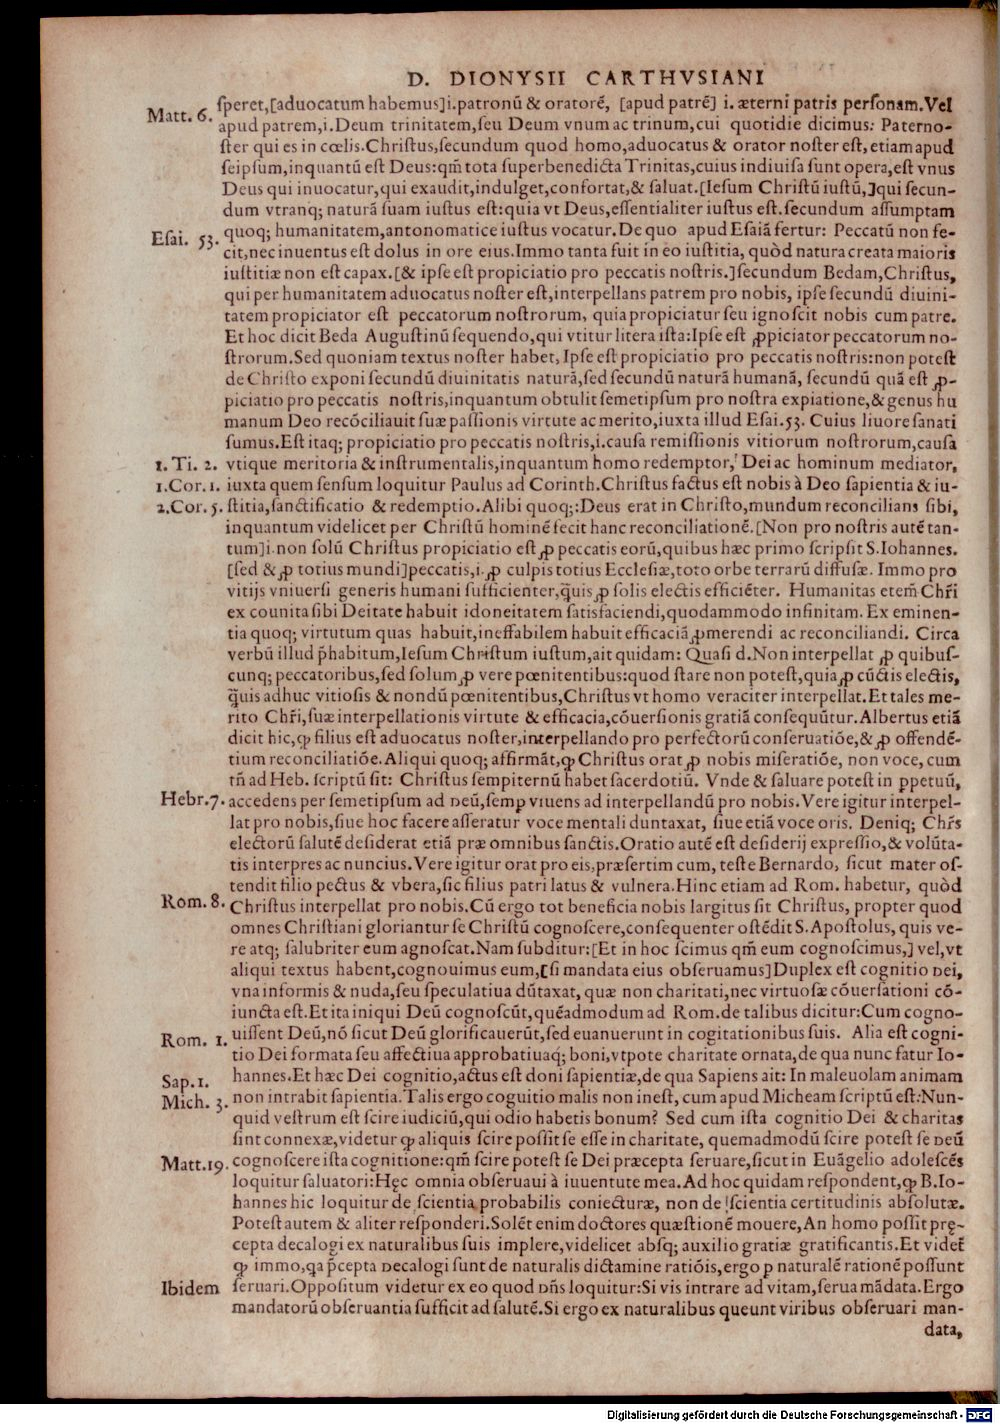 D. DIONYSII CARTHVSIANI
Matt. 6. ſperet,[aduocatum habemus]i.patronū & oratorē, [apud patrē] i. æterni patris perſonam.Vel
apud patrem,i.Deum trinitatem,ſeu Deum vnum ac trinum,cui quotidie dicimus: Paterno-
ſter qui es in cœlis.Chriſtus,ſecundum quod homo,aduocatus & orator noſter eſt, etiam apud
ſeipſum,inquantū eſt Deus:qm̄ tota ſuperbenedicta Trinitas,cuius indiuiſa ſunt opera,eſt vnus
Deus qui inuocatur,qui exaudit,indulget,confortat,& ſaluat.[Ieſum Chriſtū iuſtū,]qui ſecun-
dum vtranq; naturā ſuam iuſtus eſt:quia vt Deus,eſſentialiter iuſtus eſt.ſecundum aſſumptam
Eſai. 53. quoq; humanitatem,antonomatice iuſtus vocatur.De quo apud Eſaiā fertur: Peccatū non fe-
cit,nec inuentus eſt dolus in ore eius.Immo tanta fuit in eo iuſtitia, quòd natura creata maioris
iuſtitiæ non eſt capax.[& ipſe eſt propiciatio pro peccatis noſtris.]ſecundum Bedam,Chriſtus,
qui per humanitatem aduocatus noſter eſt,interpellans patrem pro nobis, ipſe ſecundū diuini-
tatem propiciator eſt peccatorum noſtrorum, quia propiciatur ſeu ignoſcit nobis cum patre.
Et hoc dicit Beda Auguſtinū ſequendo,qui vtitur litera iſta:Ipſe eſt ꝓpiciator peccatorum no-
ſtrorum.Sed quoniam textus noſter habet, Ipſe eſt propiciatio pro peccatis noſtris:non poteſt
de Chriſto exponi ſecundū diuinitatis naturā,ſed ſecundū naturā humanā, ſecundū quā eſt ꝓ-
piciatio pro peccatis noſtris,inquantum obtulit ſemetipſum pro noſtra expiatione,& genus hu
manum Deo recōciliauit ſuæ paſſionis virtute ac merito,iuxta illud Eſai.53. Cuius liuore ſanati
ſumus.Eſt itaq; propiciatio pro peccatis noſtris,i.cauſa remiſſionis vitiorum noſtrorum,cauſa
1. Ti. 2. vtique meritoria & inſtrumentalis,inquantum homo redemptor, Dei ac hominum mediator,
1.Cor. 1. iuxta quem ſenſum loquitur Paulus ad Corinth.Chriſtus factus eſt nobis à Deo ſapientia & iu-
2.Cor. 5. ſtitia,ſanctificatio & redemptio.Alibi quoq;:Deus erat in Chriſto,mundum reconcilians ſibi,
inquantum videlicet per Chriſtū hominē fecit hanc reconciliationē.[Non pro noſtris autē tan-
tum]i.non ſolū Chriſtus propiciatio eſt ꝓ peccatis eorū,quibus hæc primo ſcripſit S.Iohannes.
[ſed & ꝓ totius mundi]peccatis,i.ꝓ culpis totius Eccleſiæ,toto orbe terrarū diffuſæ. Immo pro
vitijs vniuerſi generis humani ſufficienter,q̄uis ꝓ ſolis electis efficiēter. Humanitas etem̄ Chr̄i
ex counita ſibi Deitate habuit idoneitatem ſatisfaciendi,quodammodo infinitam. Ex eminen-
tia quoq; virtutum quas habuit,ineffabilem habuit efficaciā ꝓmerendi ac reconciliandi. Circa
verbū illud p̄habitum,Ieſum Chriſtum iuſtum,ait quidam: Quaſi d.Non interpellat ꝓ quibuſ-
cunq; peccatoribus,ſed ſolum ꝓ vere pœnitentibus:quod ſtare non poteſt,quia ꝓ cūctis electis,
q̄uis adhuc vitioſis & nondū pœnitentibus,Chriſtus vt homo veraciter interpellat.Et tales me-
rito Chr̄i,ſuæ interpellationis virtute & efficacia,cōuerſionis gratiā conſequūtur.Albertus etiā
dicit hic,ꝙ filius eſt aduocatus noſter,interpellando pro perfectorū conſeruatiōe,& ꝓ offendē-
tium reconciliatiōe.Aliqui quoq; affirmāt,ꝙ Chriſtus orat ꝓ nobis miſeratiōe, non voce, cum
tn̄ ad Heb. ſcriptū ſit: Chriſtus ſempiternū habet ſacerdotiū. Vnde & ſaluare poteſt in ꝑpetuū,
Hebr.7. accedens per ſemetipſum ad DEū,ſemꝑ viuens ad interpellandū pro nobis.Vere igitur interpel-
lat pro nobis,ſiue hoc facere aſſeratur voce mentali duntaxat, ſiue etiā voce oris. Deniq; Chr̄s
electorū ſalutē deſiderat etiā præ omnibus ſanctis.Oratio autē eſt deſiderij expreſſio,& volūta-
tis interpres ac nuncius.Vere igitur orat pro eis,præſertim cum, teſte Bernardo, ſicut mater oſ-
tendit filio pectus & vbera,ſic filius patri latus & vulnera.Hinc etiam ad Rom. habetur, quòd
Rom. 8. Chriſtus interpellat pro nobis.Cū ergo tot beneficia nobis largitus ſit Chriſtus, propter quod
omnes Chriſtiani gloriantur ſe Chriſtū cognoſcere,conſequenter oſtēdit S.Apoſtolus, quis ve-
re atq; ſalubriter eum agnoſcat.Nam ſubditur:[Et in hoc ſcimus qm̄ eum cognoſcimus,] vel,vt
aliqui textus habent,cognouimus eum,[ſi mandata eius obſeruamus]Duplex eſt cognitio DEI,
vna informis & nuda,ſeu ſpeculatiua dūtaxat, quæ non charitati,nec virtuoſæ cōuerſationi cō-
iuncta eſt.Et ita iniqui Deū cognoſcūt,quēadmodum ad Rom.de talibus dicitur:Cum cogno-
Rom. 1. uiſſent Deū,nō ſicut Deū glorificauerūt,ſed euanuerunt in cogitationibus ſuis. Alia eſt cogni-
tio Dei formata ſeu affectiua approbatiuaq; boni,vtpote charitate ornata,de qua nunc fatur Io-
Sap.1. hannes.Et hæc Dei cognitio,actus eſt doni ſapientiæ,de qua Sapiens ait: In maleuolam animam
Mich. 3. non intrabit ſapientia.Talis ergo coguitio malis non ineſt, cum apud Micheam ſcriptū eſt:Nun-
quid veſtrum eſt ſcire iudiciū,qui odio habetis bonum? Sed cum iſta cognitio Dei & charitas
ſint connexæ,videtur ꝙ aliquis ſcire poſſit ſe eſſe in charitate, quemadmodū ſcire poteſt ſe DEū
Matt.19. cognoſcere iſta cognitione:qm̄ ſcire poteſt ſe Dei præcepta ſeruare,ſicut in Euāgelio adoleſcēs
loquitur ſaluatori:Hęc omnia obſeruaui à iuuentute mea.Ad hoc quidam reſpondent,ꝙ B.Io-
hannes hic loquitur de ſcientia probabilis coniecturæ, non de ſcientia certitudinis abſolutæ.
Poteſt autem & aliter reſponderi.Solēt enim doctores quæſtionē mouere,An homo poſſit prę-
cepta decalogi ex naturalibus ſuis implere,videlicet abſq; auxilio gratiæ gratificantis.Et videt̄
ꝙ immo,qa p̄cepta DEcalogi ſunt de naturalis dictamine ratiōis,ergo ꝑ naturalē rationē poſſunt
Ibidem ſeruari.Oppoſitum videtur ex eo quod DN̄s loquitur:Si vis intrare ad vitam,ſerua mādata.Ergo
mandatorū obſeruantia ſufficit ad ſalutē.Si ergo ex naturalibus queunt viribus obſeruari man-
data,
Digitalisierung gefördert durch die Deutsche Forschungsgemeinschaft - DFG